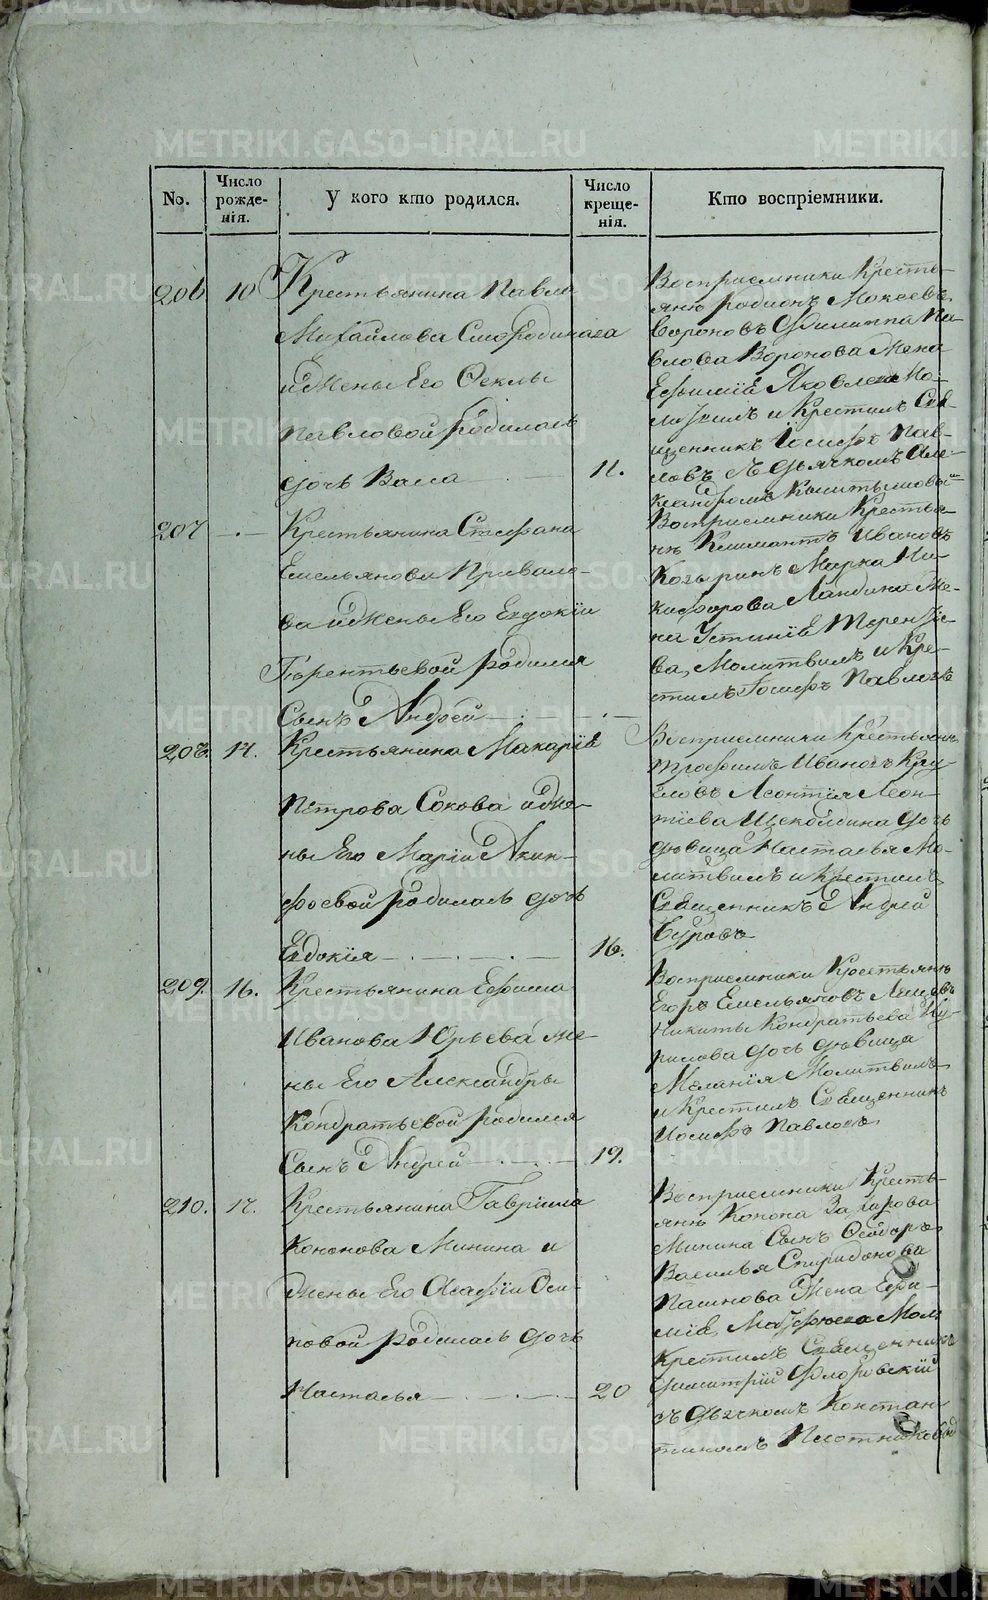 No.
Число рожде-нія.
У кого кто родился.
Число креще-нія.
Кто воспріемники.
206
10
Крестьянина Павла
Михайлова Смородинага
и жены Его Феклы
Павловой родилась
дочь Васса
12.
Восприемники Кресть-
янъ Родионъ Мокеевъ
Вороновъ Филиппа Па-
влова Воронова Жена
Ефимия Яковлева Мо-
литвилъ и Крестилъ Свя-
щенникъ Іосифъ Пав-
ловъ съ дьячкомъ Але-
ксандромъ
207
Крестьянина Стефана
Емельянова Привало-
ва и жены Его Евдокіи
Терентьевой родился
Сынъ Андрей
Восприемники Крестья-
нъ Климантъ Ивановъ
Козыринъ Марка Ни-
кифорова Ландина Же-
на Устиніѣ Терентье-
ва, Молитвилъ и Кре-
стилъ Іосифъ Павловъ
208.
12.
Крестьянина Макаріѣ
Петрова Сокова и же-
ны Его Маріи Акин-
фоевой родилась дочь
Евдокіѧ
16.
Восприемники Крестьянъ
Трофимъ Ивановъ Кру-
гловъ Леонтія Леон-
тіева Щеколдина дочь
дѣвица Насталья Мо-
литвилъ и крестилъ
Священникъ Андрей
Буровъ
209.
16.
Крестьянина Ефима
Иванова Юрьева же-
ны Его Александры
Кондратьевой родился
Сынъ Андрей
19.
Восприемники Крестьянъ
Егоръ Емельяновъ
Никиты Кондратьева Ку-
рилова дочь дѣвица
Меланія Молитвилъ
и Крестилъ Священникъ
Иосифъ Павловъ
210.
17.
Крестьянина Гавріила
Кононова Минина и
жены Его Агафіи Оси-
повой родилась дочь
Насталья
20
Восприемники Кресть-
янъ Конона Захарова
Минина Сынъ Ѳеодоръ
Василья Спиридонова
Пашнова Жена Ефи-
міѣ Матфеева Мол:
Крестилъ Священникъ
Димитрій Флоровскій
съ дьячкомъ Констан-
тиномъ Плотниковы
METRIKI.GASO-URAL.RU